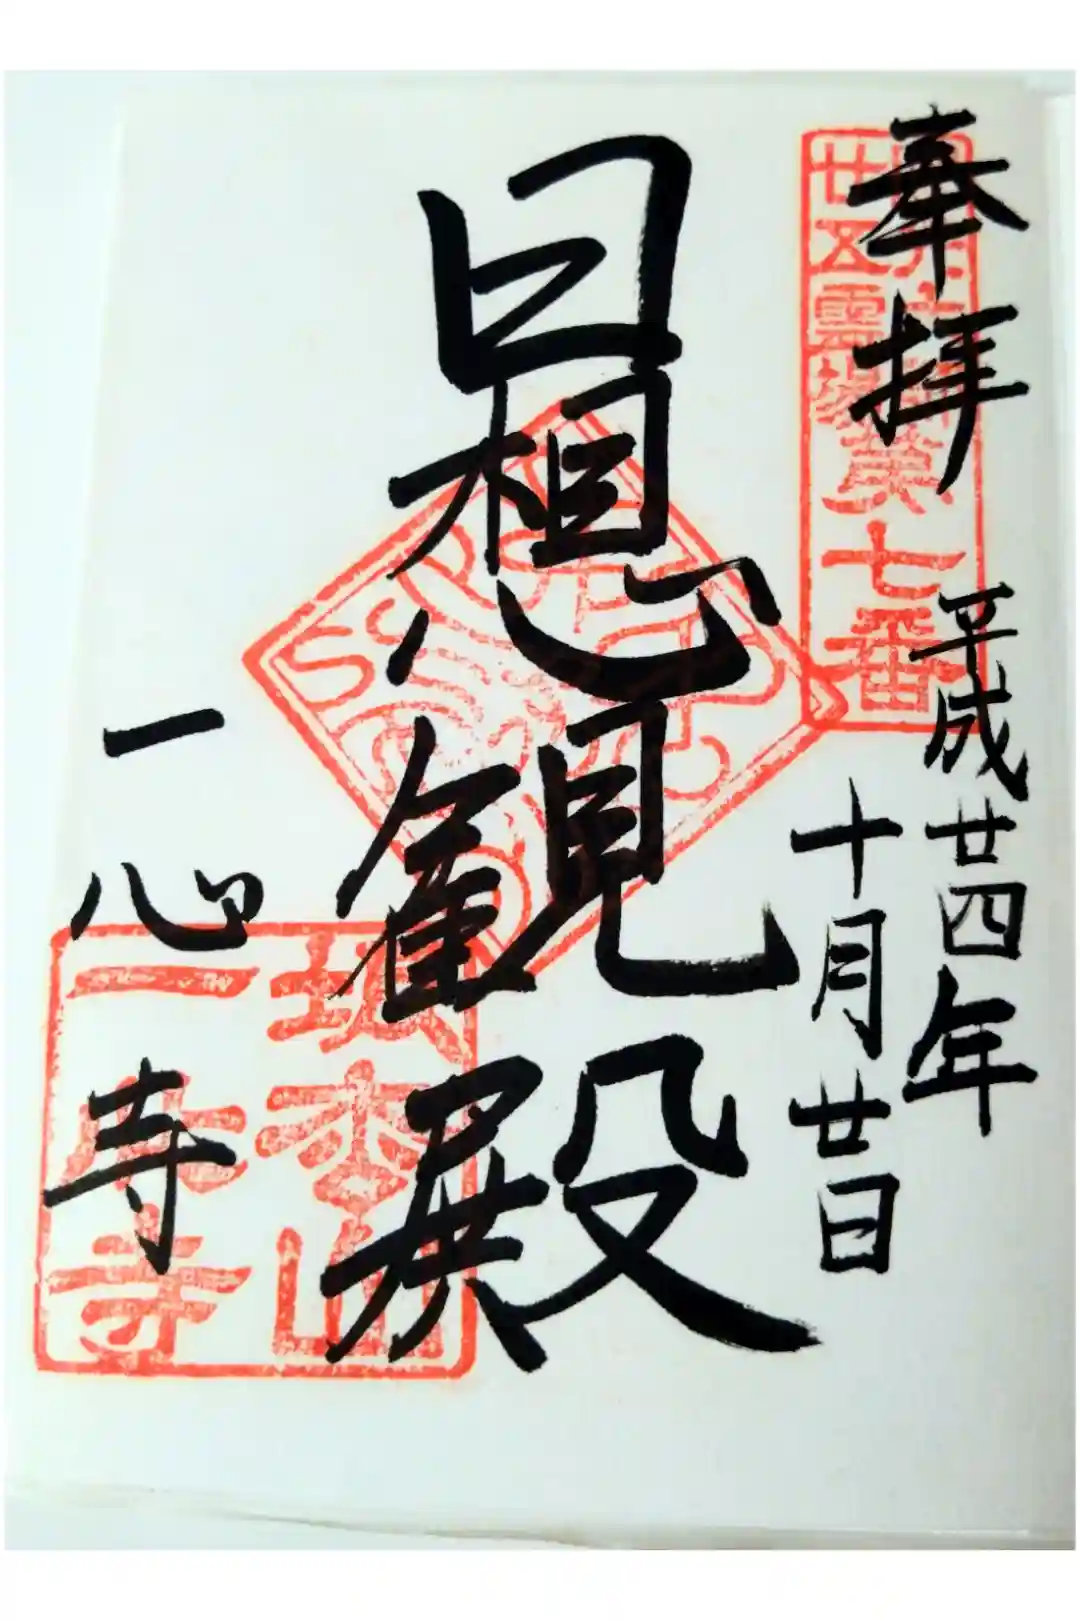 奉拝
平成廿四年
十月廿日
日想観殿
一心寺
廿五霊場第七番
坂松山
一心寺